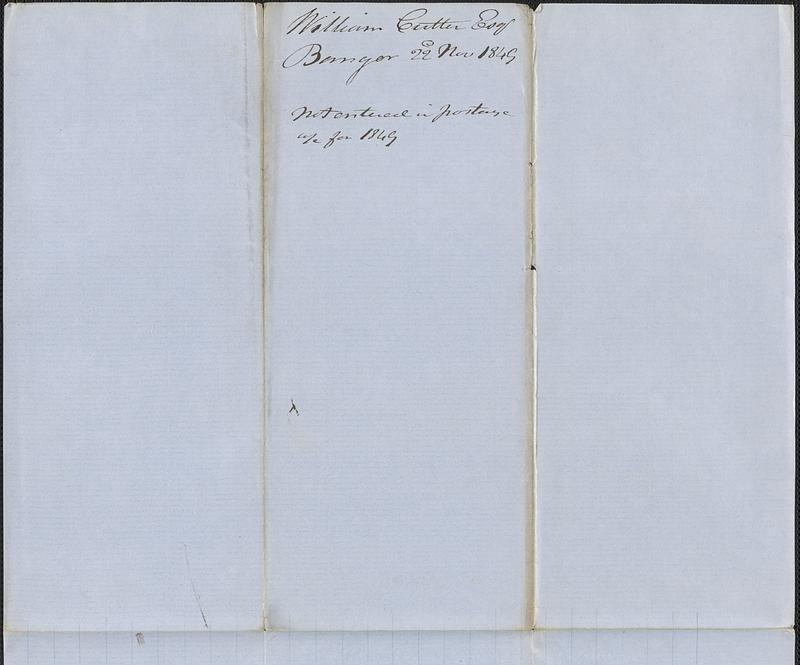 William Cutter Esq
Bangor 22d Nov 1849
Not entered in postage
a/c for 1849